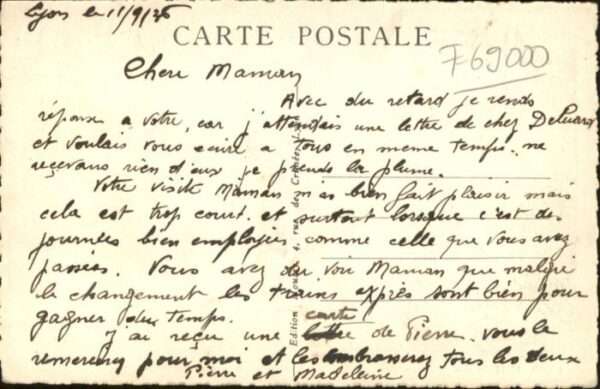 Lyon le 11/9/26
CARTE POSTALE
F69000
Chere Maman
Avec du retard je rends
réponse a votre, car j'attendais une lettre de chez
et voulais vous écrire a tous en meme temps. ne
recevant rien d'eux je prends la plume.
Votre visite Maman m'as bien fait plaisir mais
cela est trop court. et surtout lorsque c'est des
journées bien employées comme celle que vous avez
passées. Vous avez du voir Maman que malgré
le changement les trains exprès sont bien pour
gagner du temps.
J'ai reçu une carte de Pierre. vous le
remercierez pour moi et les embrasserez tous les deux
Pierre et Madeleine
Edition
rue des